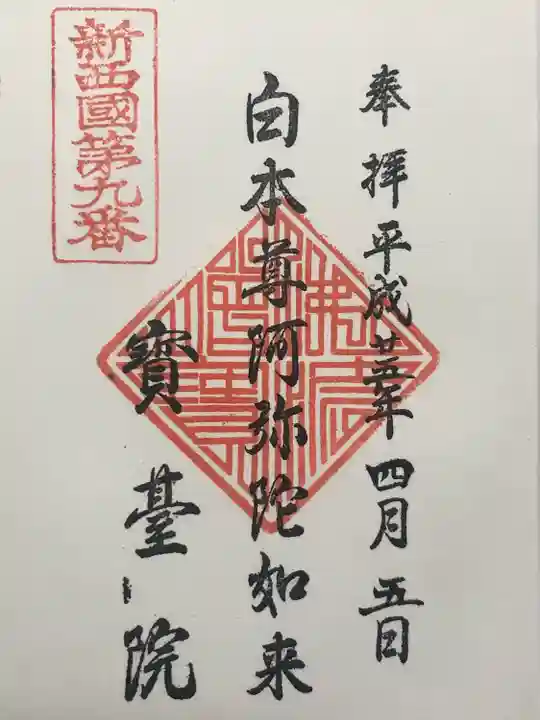 奉拝平成廿五年四月五日
白本尊阿弥陀如来
寳臺院
新西國第九番